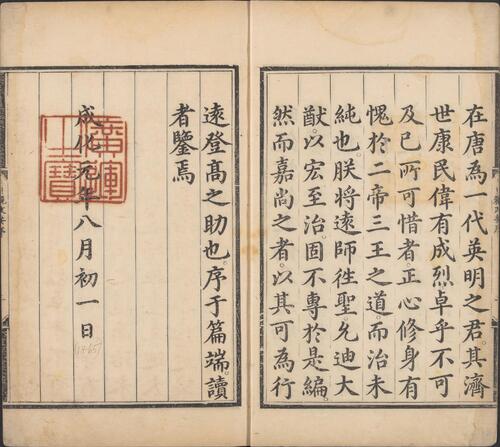 在唐為一代英明之君其濟
世康民偉有成烈卓乎不可
及已所可惜者正心修身有
愧於二帝三王之道而治未
純也朕將遠師徃聖允迪大
猷以宏至治固不專於是編
然而嘉尚之者以其可為行
遠登高之助也序于篇端讀
者鑒焉
成化元年八月初一日
廣運之寶
1465